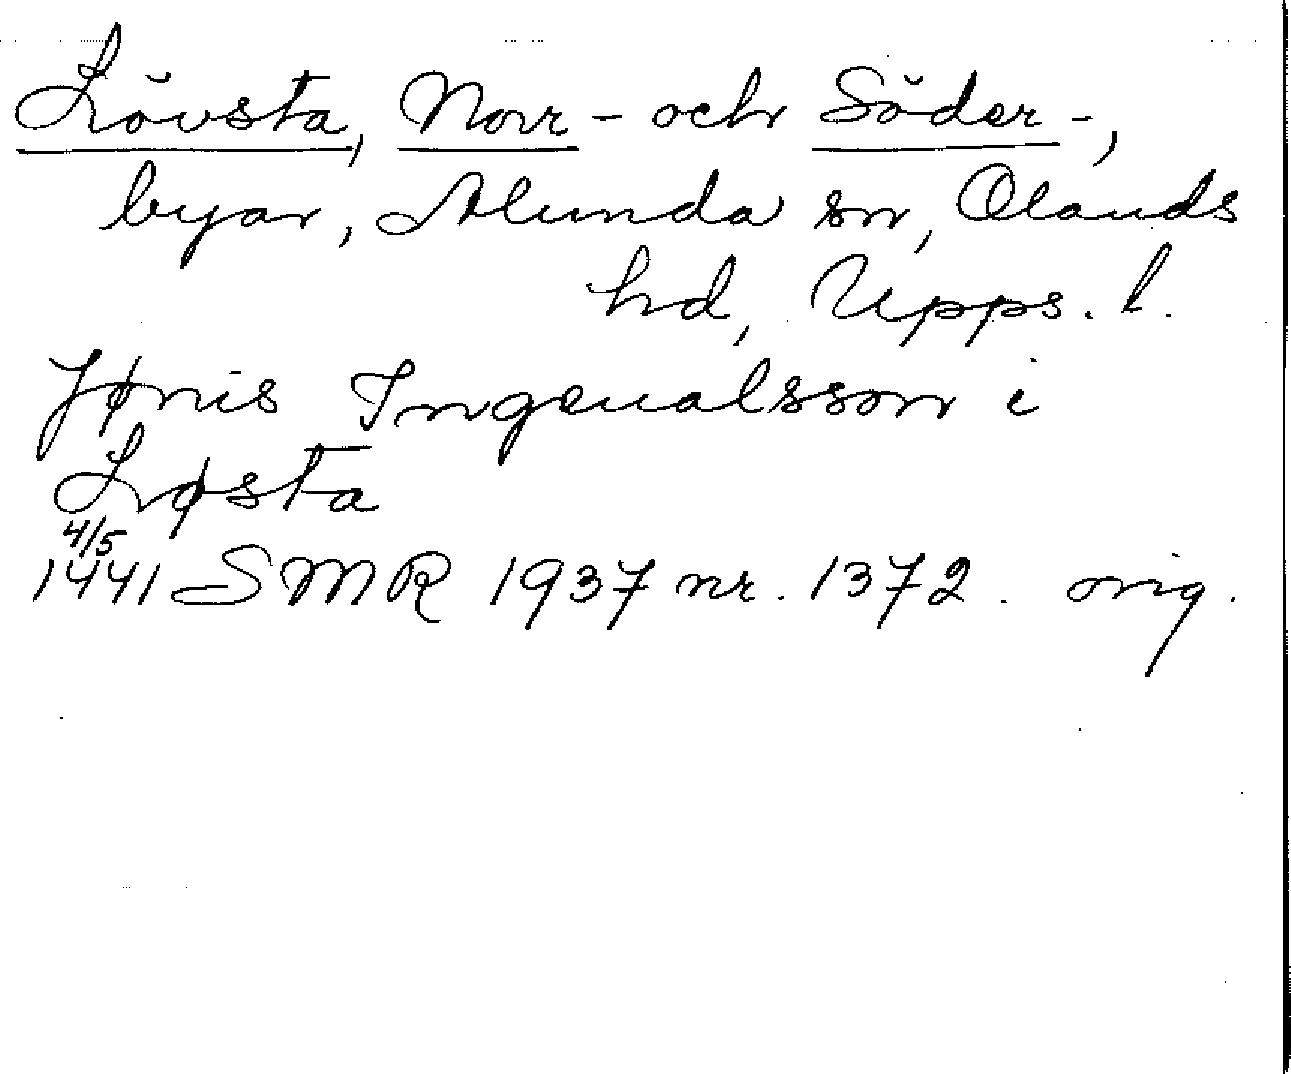 Lövsta, Norr- och Söder-,
byar, Alunda sn, Olands
hd, Upps. l.
Jønis Ingeualsson i
Løsta
4/5
1441 SMR 1937 nr. 1372. orig.